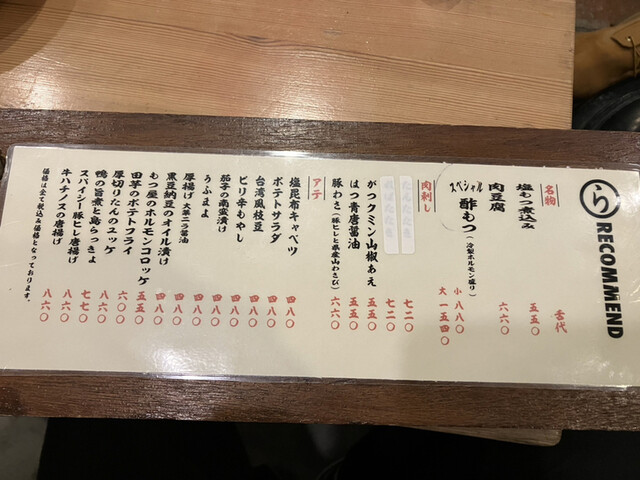 ら RECOMMEND
舌代
名物
塩もつ煮込み 五五〇
肉豆腐 六六〇
スペシャル 酢もつ（冷製ホルモン盛り） 小 八八〇 大 一五四〇
肉刺し
七二〇
七二〇
がつクミン山椒あえ 五五〇
はつ青唐醤油 五五〇
豚わさ（豚ヒレと県産山わさび） 六六〇
アテ
塩昆布キャベツ 四八〇
ポテトサラダ 四八〇
台湾風枝豆 四八〇
ピリ辛もやし 四八〇
茄子の南蛮漬け 四八〇
うふまよ 四八〇
厚揚げ 大葉ニラ醤油 四八〇
黒豆納豆のオイル漬け 四八〇
もつ屋のホルモンコロッケ 五五〇
田芋のポテトフライ 六〇〇
厚切りたんのユッケ 八六〇
鴨の旨煮と島らっきょ 七七〇
スパイシー豚ヒレ唐揚げ 八六〇
牛ハチノスの唐揚げ 八六〇
価格は全て税込み価格となっております。